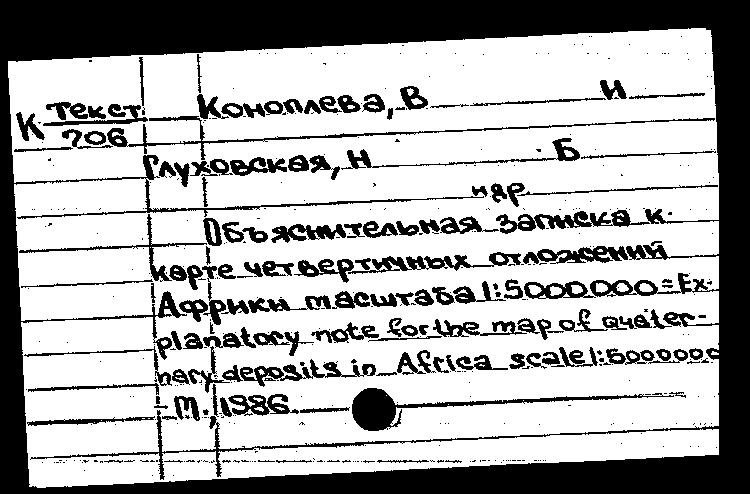 К Текст Коноплева, В И
706
Глуховская, Н Б
и др.
Объяснительная записка к
карте четвертичных отложений
Африки масштаба 1:5000000 = Ex-
planatory note for the map of quater-
nary deposits in Africa scale 1:5000000
- М., 1986.